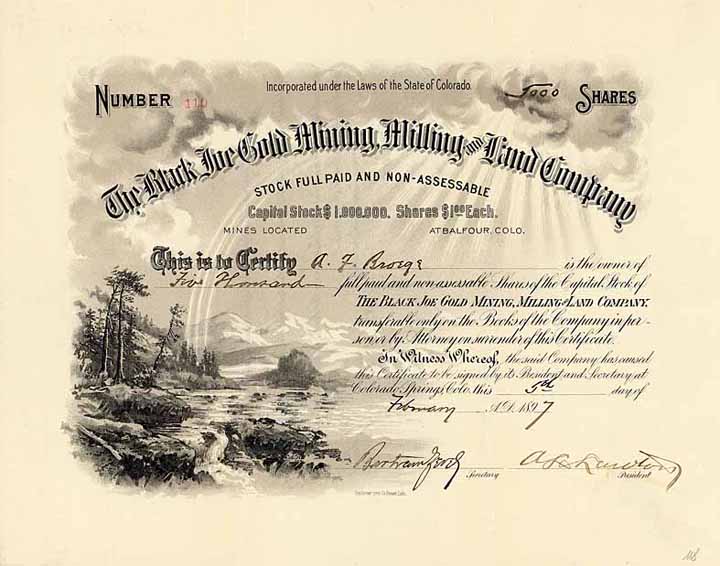 Incorporated under the Laws of the State of Colorado.
NUMBER 110 5000 SHARES
The Black Joe Gold Mining, Milling and Land Company
STOCK FULL PAID AND NON-ASSESSABLE
Capital Stock $1,000,000. Shares $1.00 Each.
MINES LOCATED AT BALFOUR, COLO.
This is to Certify A. F. is the owner of
Five Thousand full paid and non assessable Shares of the Capital Stock of
THE BLACK JOE GOLD MINING, MILLING AND LAND COMPANY.
transferable only on the Books of the Company in per-
son or by Attorney on surrender of this Certificate.
In Witness Whereof, the said Company has caused
this Certificate to be signed by its President and Secretary at
Colorado Springs, Colo. this 5th day of
February A.D. 1897
Secretary President